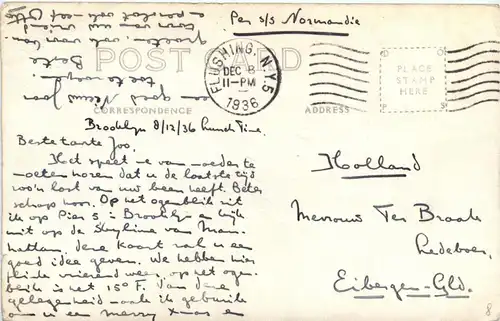 Per s/s Normandie
POST CARD
FLUSHING, N.Y. 5
DEC 8
11-PM
1936
PLACE
STAMP
HERE
CORRESPONDENCE
ADDRESS
Brooklyn 8/12/36 Lunch Time.
Beste tante Joo,
Het speet me van moeder te
moeten horen dat u de laatste tijd
zoo'n last van uw been heeft. Beter
schap hoor. Op het ogenblik zit
ik op Pier 5 in Brooklyn en kijk
uit op de Skyline van Man-
hattan, deze kaart zal u een
goed idee geven. We hebben hier
flink vriezend weer, op het ogen
blik is het 15° F. Van deze
gelegenheid maak ik gebruik
om u een merry Xmas en
een goed Nieuw Jaar
toe te wensen.
Beste
groeten, ook aan
Holland
Mevrouw Ter Braak
Ledeboer
Eibergen - Gld.
8